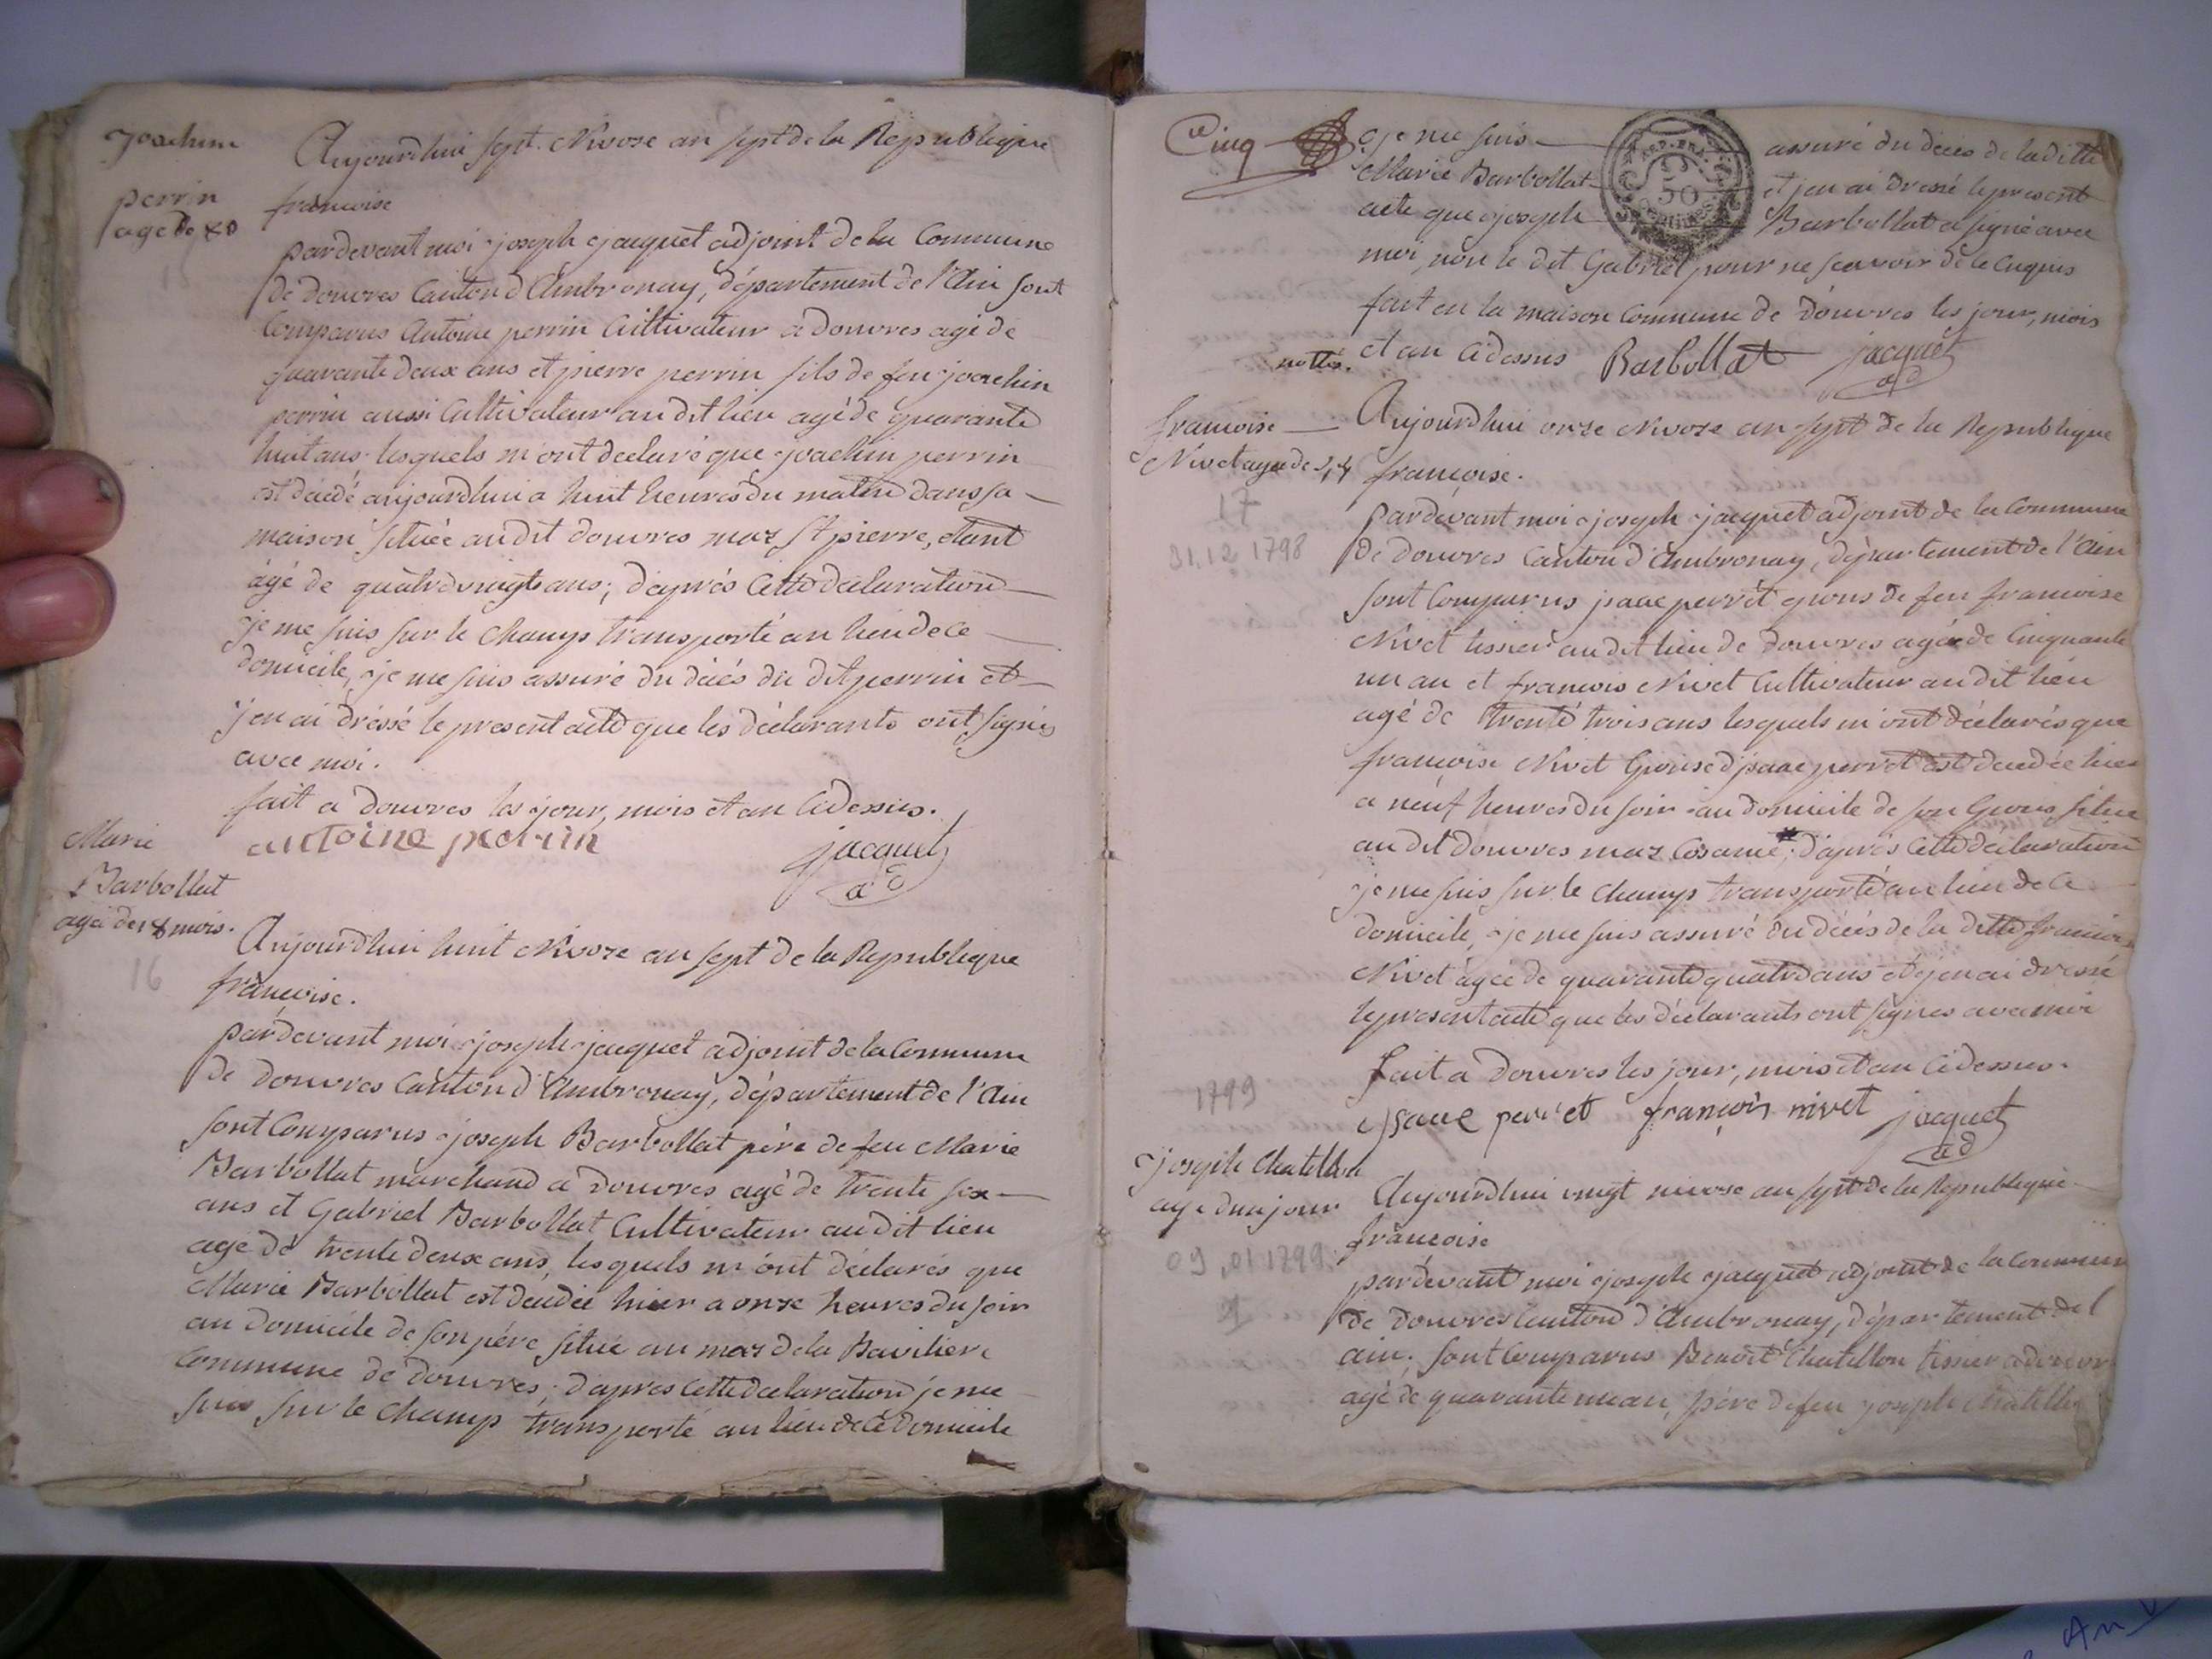 Joachim
perrin
agé de 80
Aujourdhui sept Nivose an sept de la Republique
francoise
pardevant moi joseph jacquet adjoint de la Commune
de douvres Canton d'Ambronay, département de l'Ain sont
Comparus Antoine perrin Cultivateur a douvres agé de
quarante deux ans et pierre perrin fils de feu joachin
perrin aussi Cultivateur au dit lieu agé de quarante
huit ans lesquels m'ont declaré que joachin perrin
est décédé aujourdhui a huit heures du matin dans sa
maison située au dit douvres maz St pierre, etant
âgé de quatre vingt ans; d'après Cette declaration
je me suis sur le champs transporté au lieu de ce
domicile, je me suis assuré du décés du dit perrin et
j'en ai dréssé le present acte que les déclarants ont signés
avec moi.
fait a douvres les jour, mois et an Cidessus.
antoine perrin jacquet
ad
Marie
Barbollat
agée de 18 mois.
16
Aujourdhui huit Nivoze an sept de la Republique
françoise.
pardevant moi joseph jacquet adjoint de la Commune
de douvres Canton d'Ambronay, département de l'Ain
sont Comparus joseph Barbollat pére de feu Marie
Barbollat marchand a douvres agé de trente six
ans et Gabriel Barbollat Cultivateur au dit lieu
agé de trente deux ans, lesquels m'ont déclarés que
Marie Barbollat est decedée hier a onze heures du soir
au domicile de son pére situé au maz de la Bavilière
Commune de douvres; d'apres Cette declaration je me
suis sur le champs transporté au lieu de Ce domicile
Cinq
je me suis assuré du décés de la ditte
Marie Barbollat et j'en ai dressé le present
acte que joseph Barbollat a signé avec
REP. FRA.
50
moi, non le dit Gabriel pour ne scavoir de ce enquis
fait en la maison Commune de douvres les jour, mois
et an Cidessus Barbollat jacquet
ad
francoise
Nivet agée de 44
17
31.12 1798
Aujourdhui onze Nivoze an sept de la Republique
françoise.
pardevant moi joseph jacquet adjoint de la Commune
de douvres Canton d'Ambronay, département de l'Ain
sont Comparus jsaac perret epous de feu francoise
Nivet tissier au dit lieu de douvres agée de Cinquante
un an et francois Nivet Cultivateur au dit lieu
agé de trente trois ans lesquels m'ont déclarés que
françoise Nivet Epouse d'jsaac perret est decedée hier
a neuf heures du soir au domicile de son Epous, situé
au dit douvres maz Cosance; d'aprés Cette declaration
je me suis sur le champs transporté au lieu de Ce
domicile, je me suis assuré du décés de la ditte francoise
Nivet âgée de quarante quatre ans et j'en ai dressé
le present acte que les déclarants ont signés avec moi
fait a douvres les jour, mois et an Cidessus.
jsaac perret françois nivet jacquet
ad
1799
Joseph Chatillon
agé d'un jour
09.01 1799
1
Aujourdhui vingt nivose an sept de la Republique
françoise
pardevant moi joseph jacquet adjoint de la Commune
de douvres Canton d'Ambronay, département de l
ain, sont Comparus Benoit Chatillon tissier a douvres
agé de quarante un an, pére de feu joseph chatillon